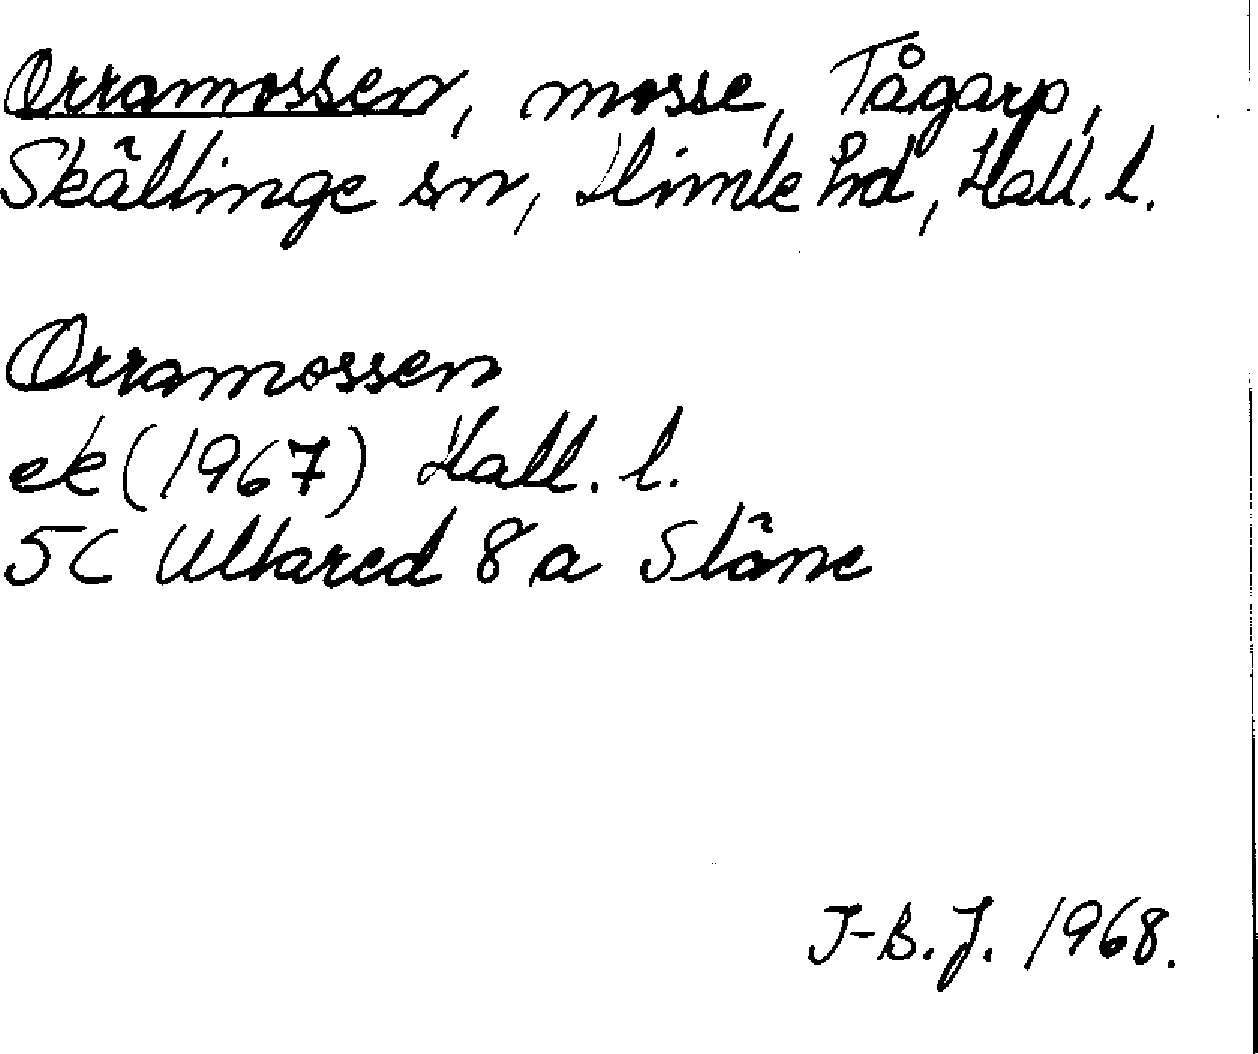 Orramossen, mosse, Tågarp,
Skällinge sn, Himle hd, Hall. l.
Orramossen
ek (1967) Hall. l.
5C Ullared 8 a Släne
I-B. J. 1968.